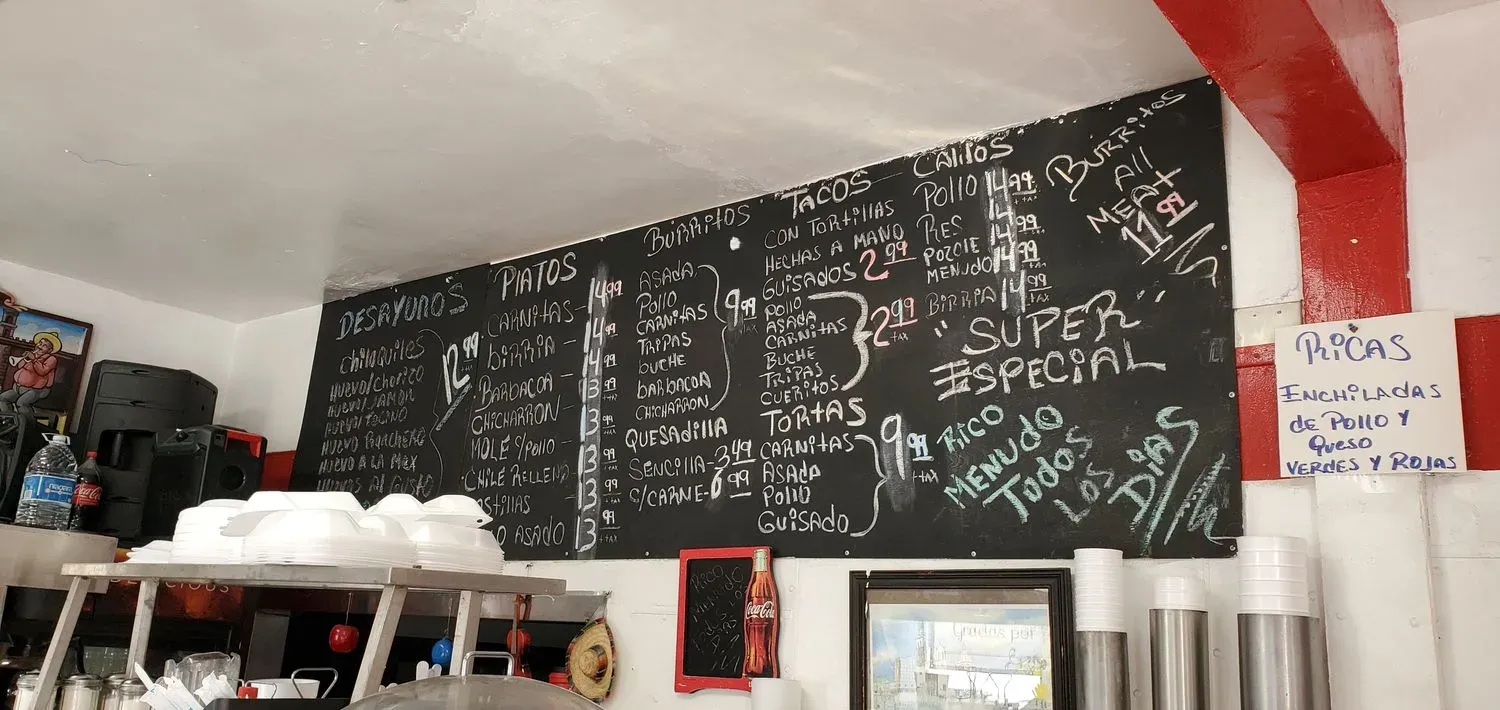 DESAYUNOS
Chilaquiles
HUEVO/Chorizo
HUEVO/JAMON
HUEVO/TOCINO
HUEVO RANCHERO
HUEVO A LA MEX
HUEVOS AL GUSTO
12.99
PLATOS
CARNITAS- 14.99
BIRRIA- 14.99
BARBACOA- 14.99
CHICHARRON- 13.99
MOLE S/POLLO- 13.99
CHILE RELLENO 13.99
13.99
ASADO 13.99
BURRITOS
ASADA
POLLO
CARNITAS
TRIPAS
BUCHE
BARBACOA
CHICHARRON
9.99 +TAX
QUESADILLA
SENCILLA- 3.49
C/CARNE- 6.99
TACOS
CON TORTILLAS
HECHAS A MANO
GUISADOS 2.99
POLLO
ASADA
CARNITAS
BUCHE
TRIPAS
CUERITOS
2.99 +TAX
TORTAS
CARNITAS
ASADA
POLLO
GUISADO
9.99 +TAX
CALDOS
POLLO 14.99
RES 14.99
POZOLE 14.99
MENUDO
BIRRIA 14.99
BURRITOS
All
MEAT
11.99
"SUPER"
ESPECIAL
RICO
MENUDO
TODOS
LOS
DIAS
RICAS
ENCHILADAS
de POLLO Y
QUESO
VERDES Y ROJAS
RICO
MENUDO
Coca-Cola
Coca-Cola
Gracias por